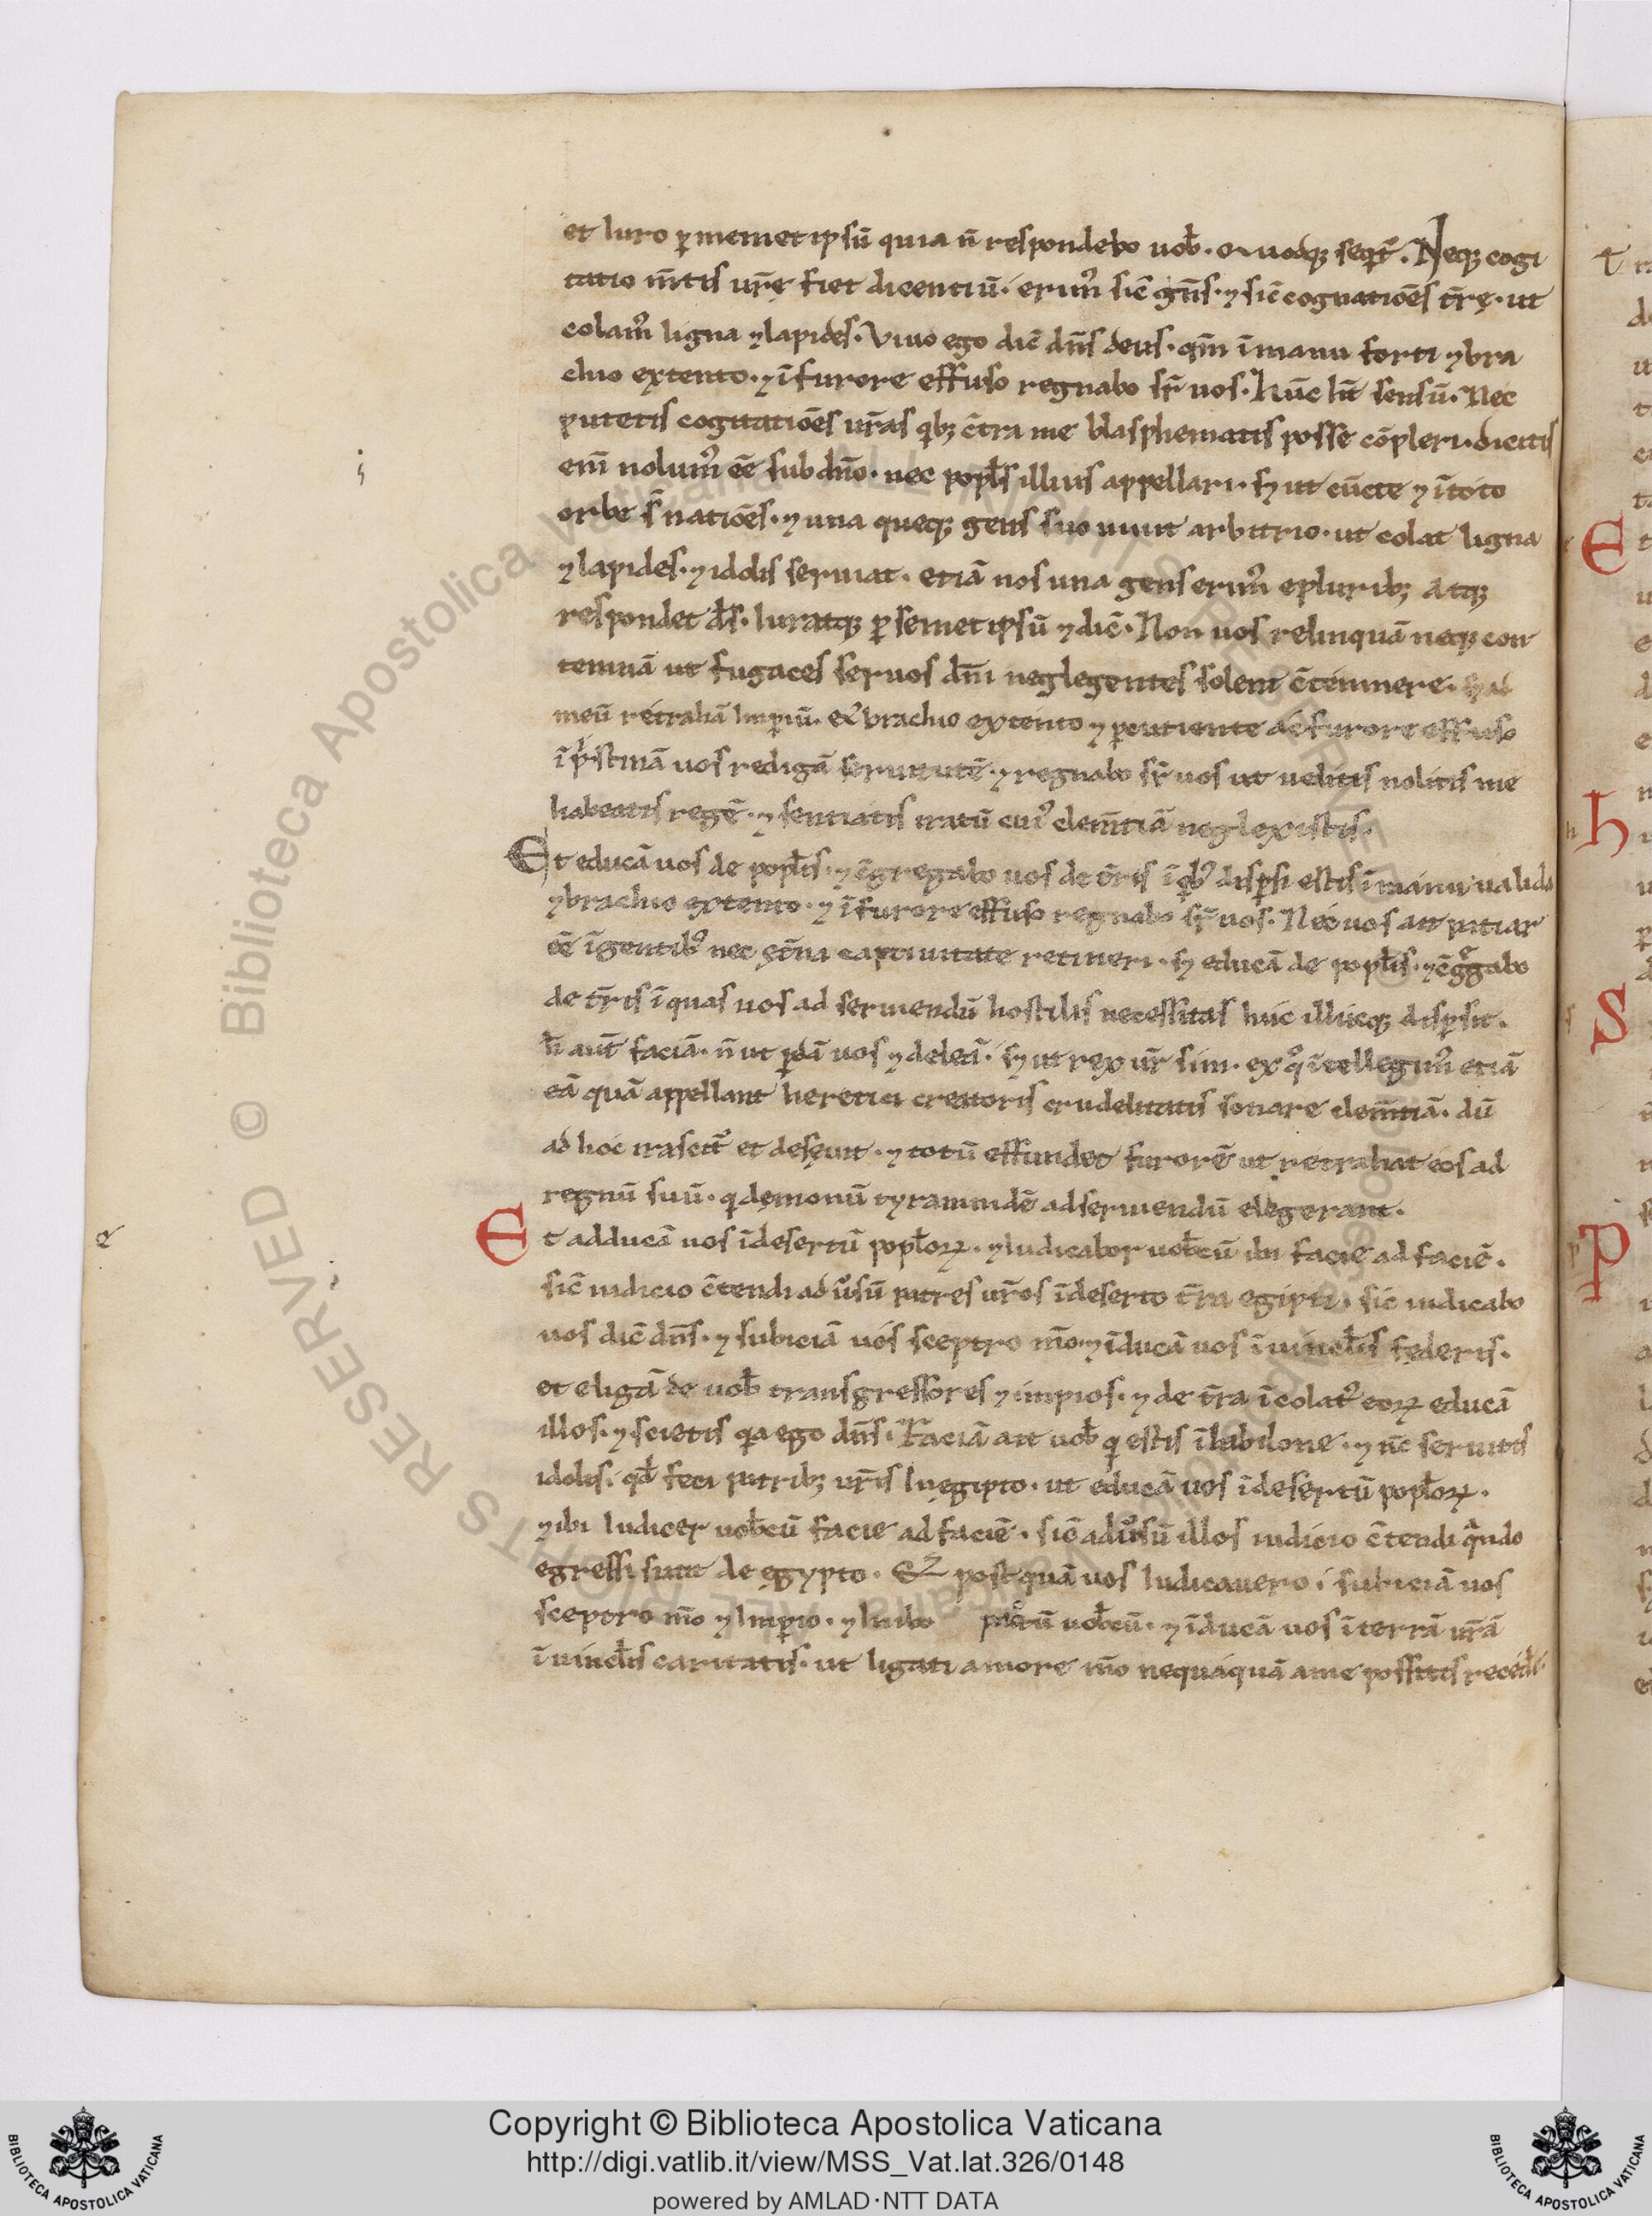 et Iuro ꝑ memet ipsū quia n̄ respondebo uob̄. Quodq; seqͥt᷑. Neq; cogi
tatio m̄tis ur̄ę fiet dicentiū. erimꝰ sic̄ gn̄s. ⁊ sic̄ cognatiōes t̄rę. ut
colamꝰ ligna ⁊ lapides. Viuo ego dic̄ dn̄s deus. qm̄ ī manu forti ⁊ bra
chio extento. ⁊ ī furore effuso regnabo sr̄ uos. Hūc h̄t sensū. Nec
putetis cogitatiōes ur̄as qͥb; c̄tra me blasphematis posse cōpleri. dicitis
em̄ nolumꝰ ēē sub dn̄o. nec popl̄s illius appellari. sꝫ ut cūcte ⁊ ī toto
orbe s̄ natiōes. ⁊ una queq; gens suo uiuit arbitrio. ut colat ligna
⁊ lapides. ⁊ idolis seruiat. etiā nos una gens erimꝰ e plurib; Atq;
respondet d̄s. Iuratq; ꝑ semet ipsū ⁊ dic̄. Non uos relinquā neq; con
temnā ut fugaces seruos dn̄i neglegentes solent c̄temnere. sꝫ ad
meū retrahā Imꝑiū. et brachio extento ⁊ ꝑcutiente ac furore effuso
ī pͥstinā uos redigā seruitutē. ⁊ regnabo sr̄ uos ut uelitis nolitis me
habeatis regē. ⁊ sentiatis iratū cuiꝰ clem̄tiā neglexistis.
Et educā uos de popl̄is. ⁊ c̄gregabo uos de t̄ris ī qͥbꝰ disꝑsi estis ī manu ualida
⁊ brachio extento. ⁊ ī furore effuso regnabo sr̄ uos. Nec uos aū patiar
ēē ī gentibꝰ nec ęt̄na captiuitate retineri. sꝫ educā de popl̄is. ⁊ c̄ggabo
de t̄ris ī quas uos ad seruiendū hostilis necessitas huc illucq; disꝑsit.
h̄ aūt faciā. n̄ ut ꝑdā uos ⁊ deleā. sꝫ ut rex ur̄ sim. ex qͦ ītellegimꝰ etiā
eā quā appellant heretici creatoris crudelitatis sonare clem̄tiā. dū
ad hoc irascit᷑ et deseuit. ⁊ totū effundet furorē ut retrahat eos ad
regnū suū. qͥ demonū tyrannidē ad seruiendū elegerant.
Et adducā uos ī desertū popl̄oꝝ. ⁊ Iudicabor uob̄cū ibi facie ad faciē.
sic̄ iudicio c̄tendi aduͥsū patres ur̄os ī deserto t̄ra egipti. sic iudicabo
uos dic̄ dn̄s. ⁊ subiciā uos sceptro m̄o ⁊ īducā uos ī uincl̄is fęderis.
et eligā de uob̄ transgressores ⁊ impios. ⁊ de t̄ra īcolatꝰ eoꝝ educā
illos. ⁊ scietis qͥa ego dn̄s. Faciā aū uob̄ qͥ estis ī babilone. ⁊ nc̄ seruitis
idolis. qd̄ feci patrib; ur̄is In ęgipto. ut educā uos ī desertū popl̄oꝝ.
⁊ ibi Iudicer uob̄cū facie ad faciē. sic̄ aduͥsū illos iudicio c̄tendi qͣndo
egressi sunt de ęgypto. Et postquā uos Iudicauero. subiciā uos
sceptro m̄o ⁊ Imꝑio. ⁊ Inibo pactū uob̄cū. ⁊ īducā uos ī terrā ur̄ā
ī uincl̄is caritatis. ut ligati amore m̄o nequaquā a me possitis
© Biblioteca Apostolica Vaticana
ALL RIGHTS RESERVED
Copyright © Biblioteca Apostolica Vaticana
http://digi.vatlib.it/view/MSS_Vat.lat.326/0148
powered by AMLAD·NTT DATA
BIBLIOTECA APOSTOLICA VATICANA
BIBLIOTECA APOSTOLICA VATICANA